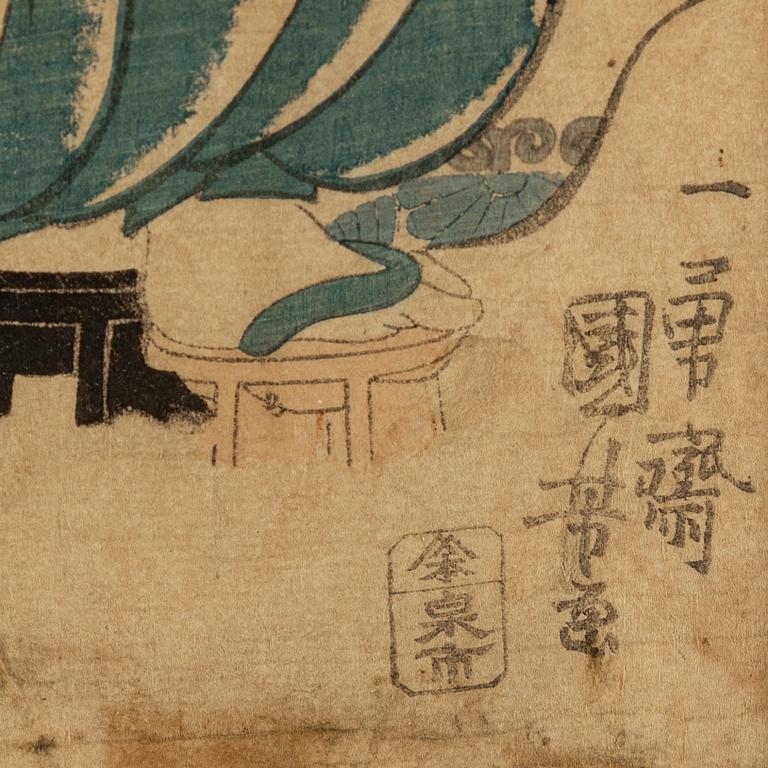 一勇齋
國芳画
泉市